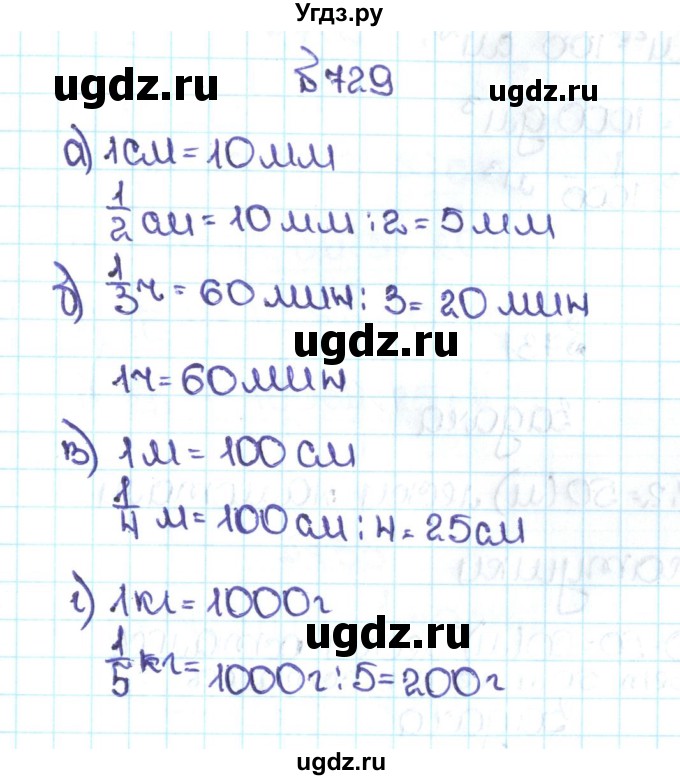 Угдз.ру
ugdz.ru №729 ugdz.ru
а) 1см = 10мм
1/2 см = 10мм : 2 = 5мм
б) 1/3 ч = 60мин : 3 = 20мин
ugdz.ru ugdz.ru
1ч = 60мин
в) 1м = 100см
1/4 м = 100см : 4 = 25см
г) 1кг = 1000г
ugdz.ru
1/5 кг = 1000г : 5 = 200г
ugdz.ru ugdz.ru